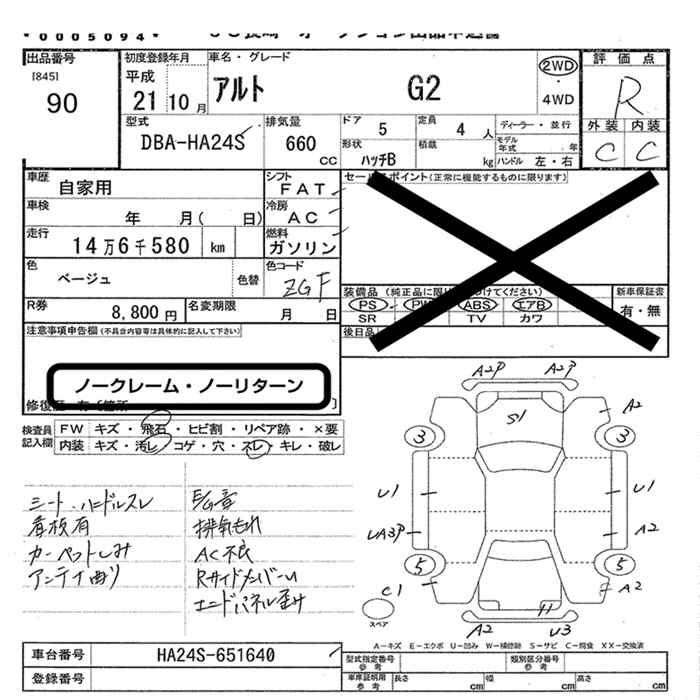 *0005094*
出品番号
[845]
90
初度登録年月
平成
21 10 月
車名・グレード
アルト G2
2WD
・
4WD
評価点
R
外装 内装
C C
型式
DBA-HA24S
排気量
660
cc
ドア
5
定員
4 人
形状
ハッチB
積載
kg
ディーラー・並行
モデル年式 ・ 年
ハンドル 左・右
車歴
自家用
シフト
FAT
車検
年 月( 日)
冷房
AC
走行
14万6千580 km
燃料
ガソリン
色
ベージュ
色替
色コード
ZGF
R券
8,800 円
名変期限
月 日
セールスポイント(正常に機能するものに限ります)
装備品
PS PW ABS エアB
SR TV カワ
新車保証書
有・無
後日品
注意事項申告欄(不具合内容等は具体的に記入して下さい)
ノークレーム・ノーリターン
検査員記入欄
FW キズ・飛石・ヒビ割・リペア跡・×要
内装 キズ・汚レ・コゲ・穴・スレ・キレ・破レ
シート、ハンドルスレ
看板有
カーペットしみ
アンテナ曲り
E/G音
排気もれ
AC不良
RサイドメンバーU
エンドパネル歪み
A2P A2P
S1
A2
3 3
U1 U1
UA3P A2
5 5
C1 A2
スペア
H
A2 U3
A-キズ E-エクボ U-凹み W-補修跡 S-サビ C-腐食 XX-交換済
車台番号
HA24S-651640
登録番号
型式指定番号
参考
類別区分番号
参考
車庫証明用
参考
長さ cm 幅 cm 高さ cm